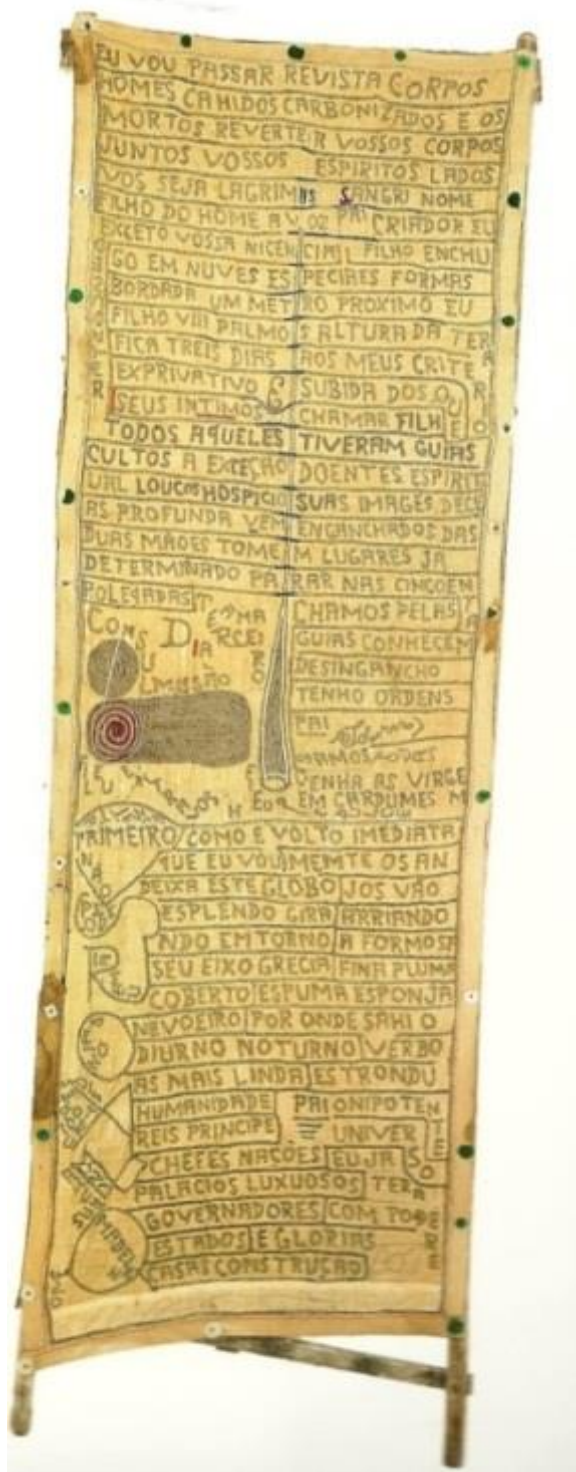 EU VOU PASSAR REVISTA CORPOS
HOMES CAHIDOS CARBONIZADOS E OS
MORTOS REVERTEIR VOSSOS CORPOS
JUNTOS VOSSOS ESPIRITOS LADOS
VOS SEJA LAGRIMAS SANGRI NOME
FILHO DO HOME A VOZ PAI CRIADOR EU
EXCETO VOSSA FILHO ENCHU
GO EM NUVES ESPECIAES FORMAS
BORDADA UM METRO PROXIMO EU
FILHO VIII PALMOS ALTURA DA TERA
FICA TREIS DIAS AOS MEUS CRITE
EXPRIVATIVO SUBIDA DOS
SEUS INTIMOS CHAMAR FILH
TODOS AQUELES TIVERAM GUIAS
CULTOS A EXCEÇÃO DOENTES ESPIRIT
UAL LOUCOS HOSPICIO SUAS IMAGES DECE
AS PROFUNDA VEM ENGANCHADOS DAS
DUAS MÃOES TOMEM LUGARES JA
DETERMINADO PARAR NAS CINCOEM
POLEGADAS CHAMOS PELAS
GUIAS CONHECEM
DESINGANCHO
TENHO ORDENS
PAI
VENHA AS VIRGE
EM CARDUMES M
PRIMEIRO COMO E VOLTO IMEDIATA
QUE EU VOU MEMTE OS AN
DEIXA ESTE GLOBO JOS VÃO
ESPLENDO GIRA ARRIANDO
NDO EM TORNO A FORMOSA
SEU EIXO GRECIA FINA PLUMA
COBERTO ESPUMA ESPONJA
NEVOEIRO POR ONDE SAHI O
DIURNO NOTURNO VERBO
AS MAIS LINDA ESTRONDU
HUMANIDADE PAI ONIPOTEN
REIS PRINCIPE UNIVER
CHEFES NAÇÕES EU JA SO
PALACIOS LUXUOSOS TERA
GOVERNADORES COM PODE
ESTADOS E GLORIAS
CASAS CONSTRUÇÃO